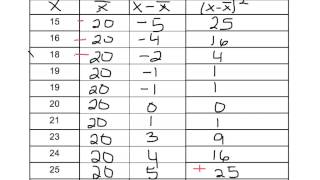 X x̄ X-x̄ (x-x̄)²
15 - 20 -5 25
16 - 20 -4 16
18 - 20 -2 4
19 20 -1 1
19 20 -1 1
20 20 0 0
21 20 1 1
23 20 3 9
24 20 4 16
25 20 5 + 25